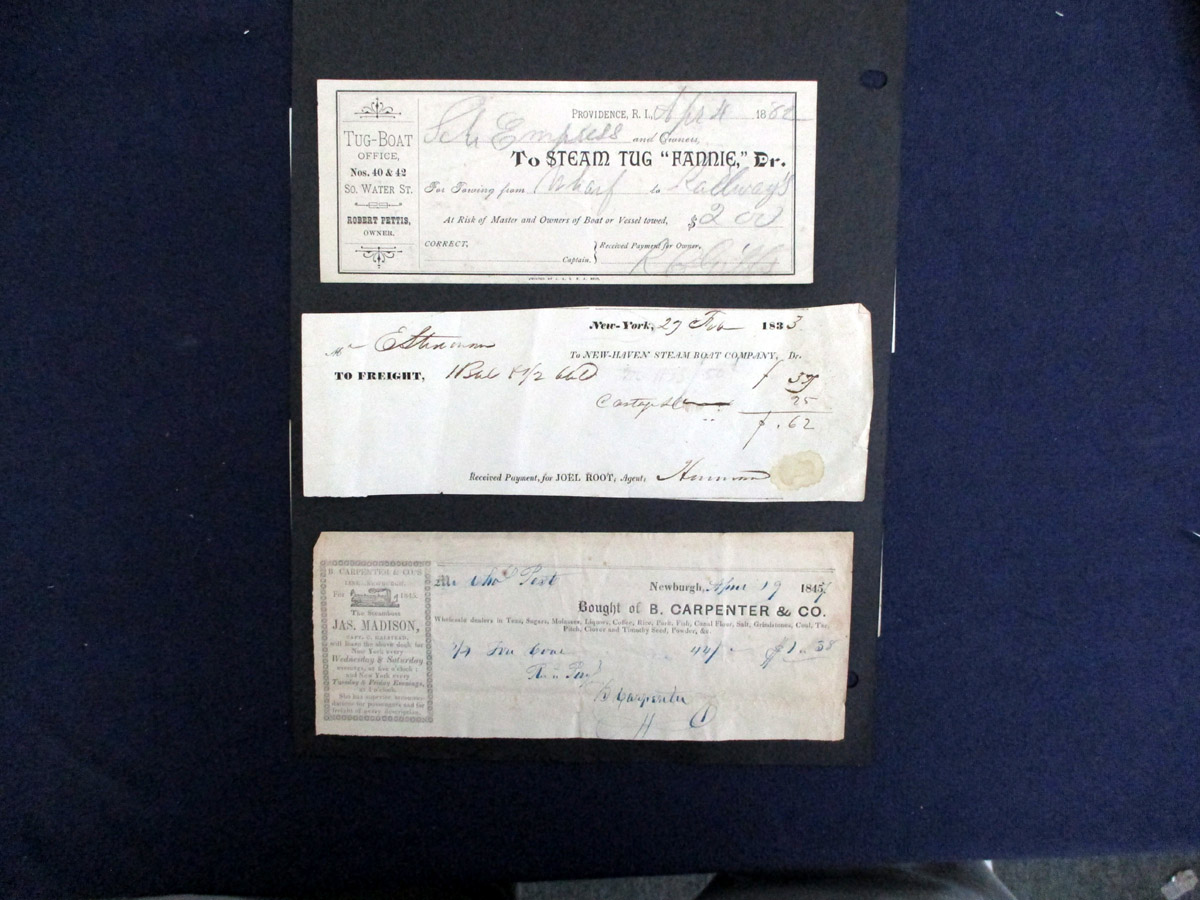 TUG-BOAT
OFFICE,
Nos. 40 & 42
SO. WATER ST.
ROBERT PETTIS,
OWNER.
PROVIDENCE, R. I., Apr 4 1882
Sch Empress and Owners,
To STEAM TUG "FANNIE," Dr.
For Towing from Wharf to Railways
At Risk of Master and Owners of Boat or Vessel towed, $2 00
CORRECT,
Received Payment for Owner,
Captain.
New-York, 27 Feb 1833
Mr
To NEW-HAVEN STEAM BOAT COMPANY, Dr.
TO FREIGHT, 37
Cartage 25
.62
Received Payment, for JOEL ROOT, Agent,
B. CARPENTER & CO'S
LINE, NEWBURGH.
For 1845.
The Steamboat
JAS. MADISON,
CAPT. C. HALSTEAD,
will leave the above dock for
New York every
Wednesday & Saturday
and New York every
Tuesday & Friday Evenings,
at 5 o'clock.
She has superior accommo-
dations for passengers and for
freight of every description.
Mr Chas Post
Newburgh, April 19 1847
Bought of B. CARPENTER & CO.
Wholesale dealers in Teas, Sugars, Molasses, Liquors, Coffee, Rice, Pork, Fish, Canal Flour, Salt, Grindstones, Coal, Tar,
Pitch, Clover and Timothy Seed, Powder, &c.
1/4 Ton Coal 44/- $1.38
B Carpenter